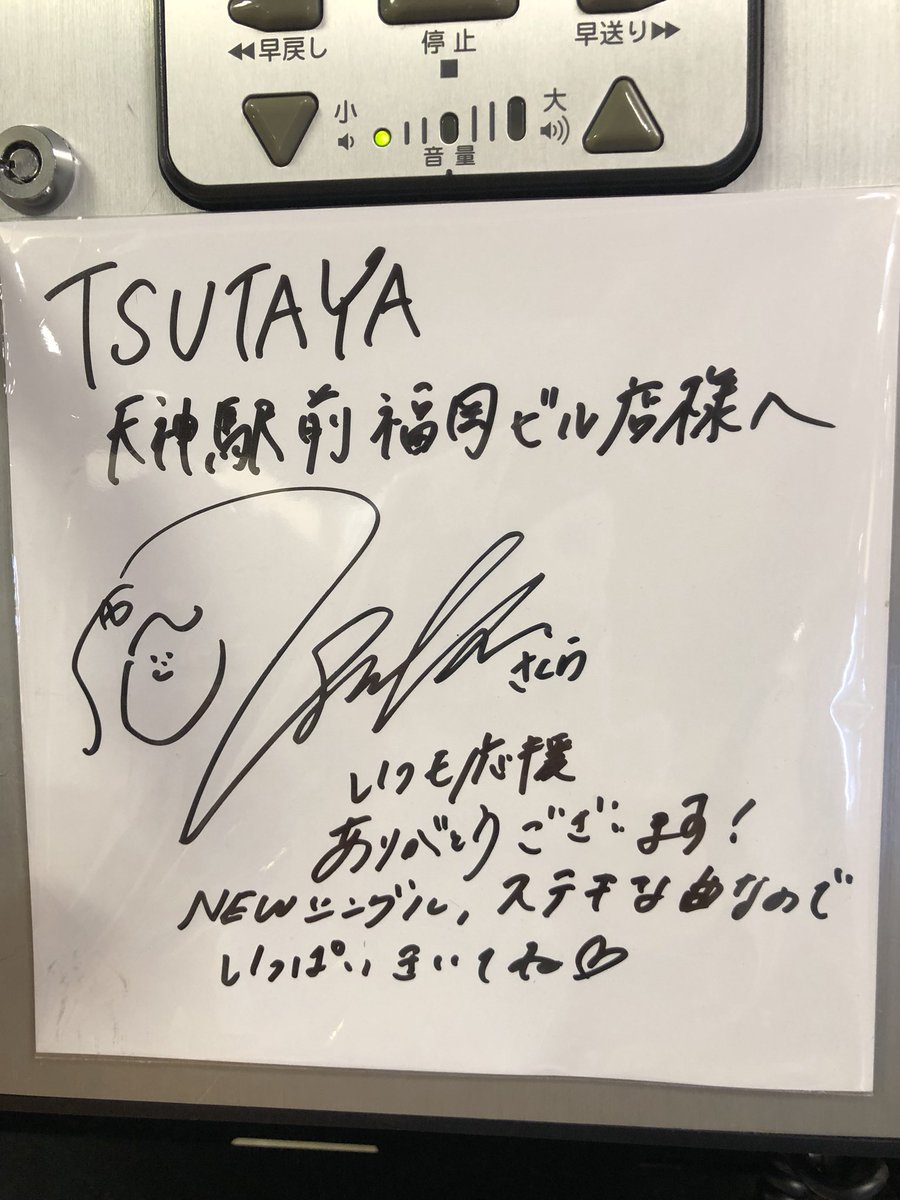 ◀◀早戻し 停止 早送り▶▶
■
小 大
音量
TSUTAYA
天神駅前福岡ビル店様へ
さくら
いつも応援
ありがとうございます!
NEWシングル、ステキな曲なので
いっぱいきいてね♡